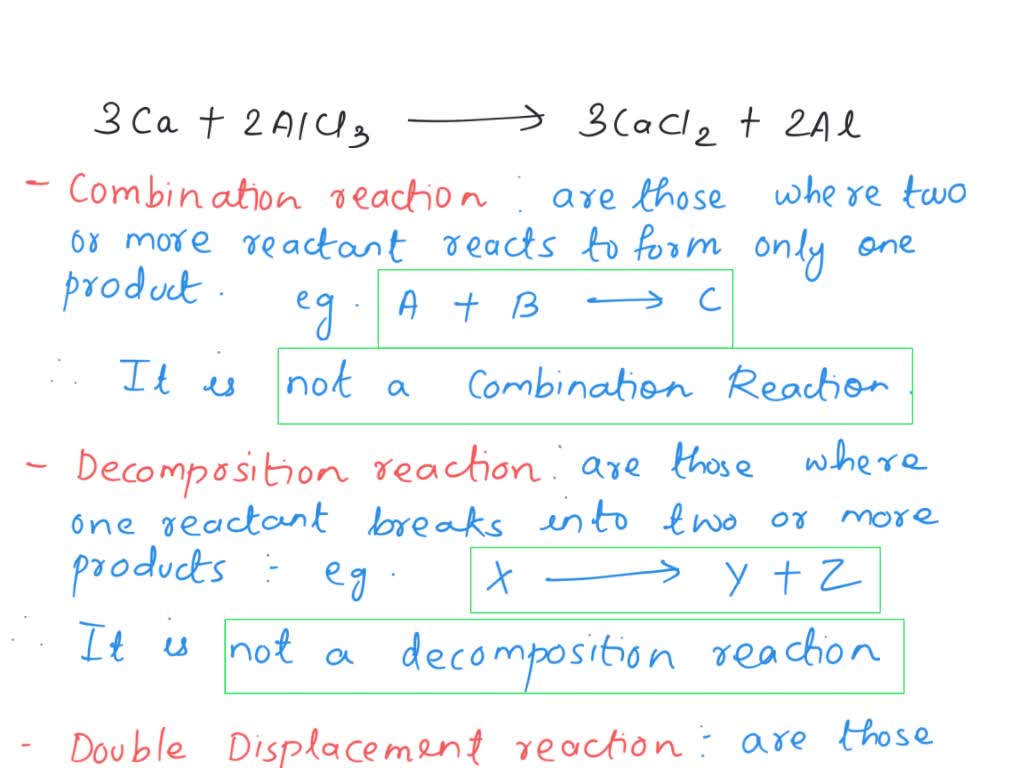 3Ca + 2AlCl3 → 3CaCl2 + 2Al
- Combination reaction : are those where two
or more reactant reacts to form only one
product. eg. A + B → C
∴ It is not a Combination Reaction.
- Decomposition reaction : are those where
one reactant breaks into two or more
products :- eg. X → Y + Z
∴ It is not a decomposition reaction
- Double Displacement reaction :- are those